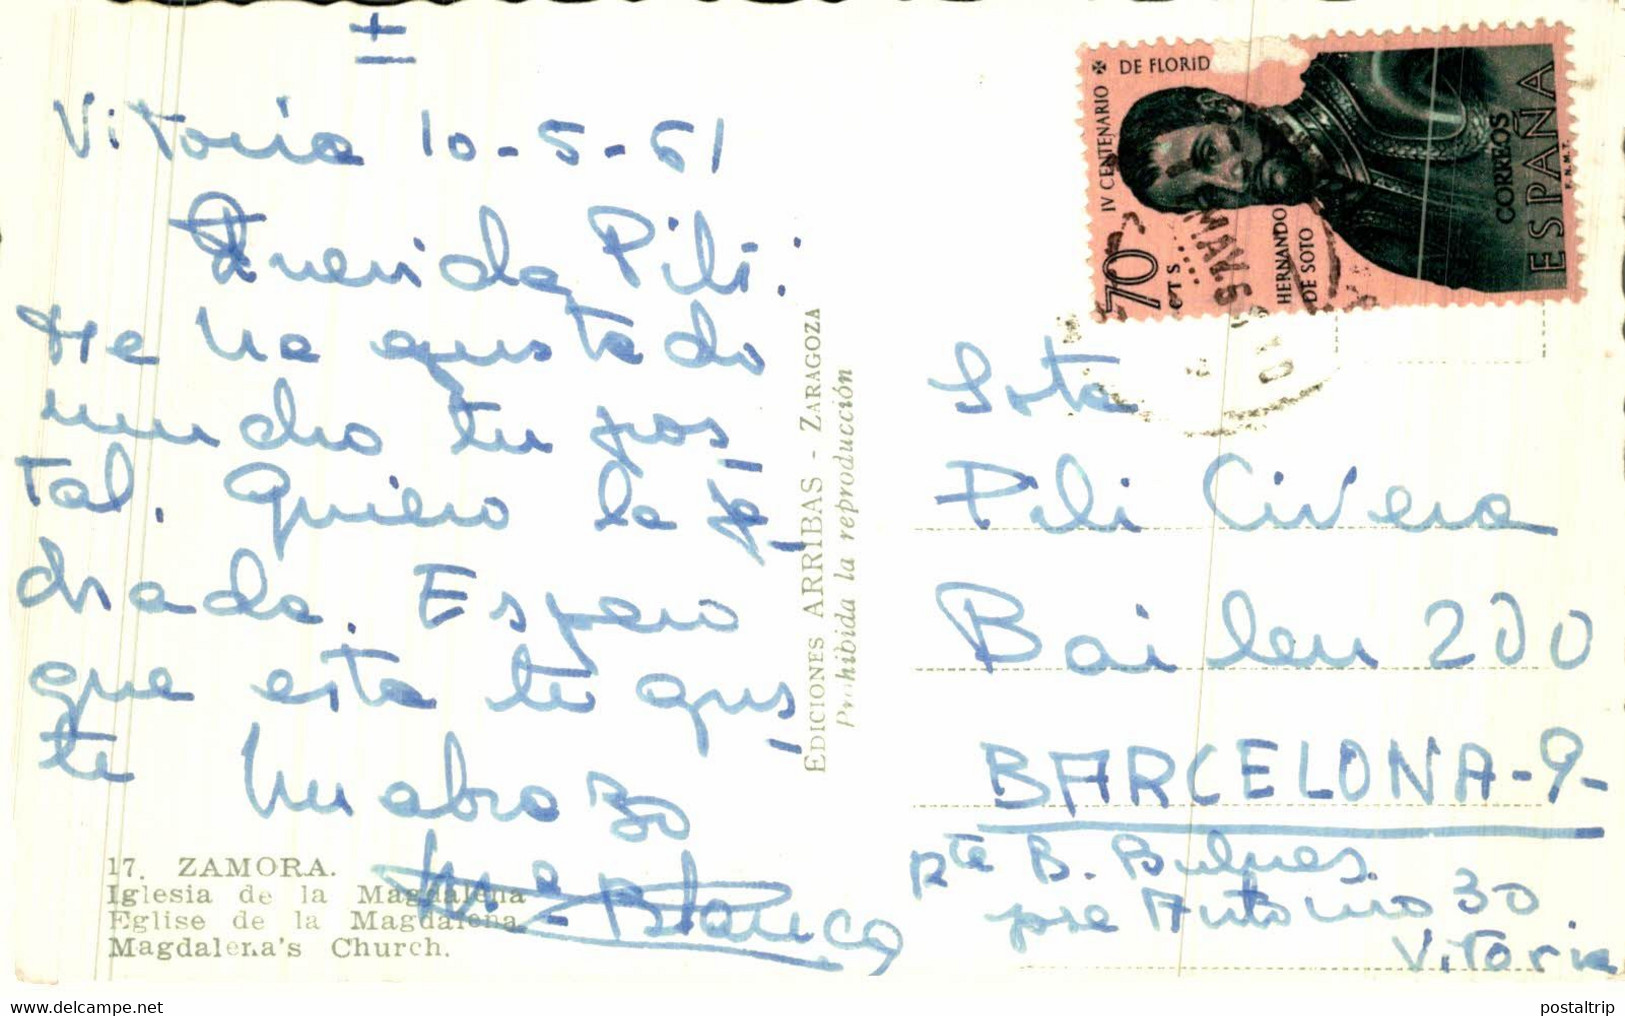 Vitoria 10-5-61
Querida Pili:
Me ha gustado
mucho tu pos_
tal. Quiero la pe_
drada. Espero
que esta te gus_
te Un abrazo
Mª Blanca
17. ZAMORA.
Iglesia de la Magdalena
Eglise de la Magdalena
Magdalena's Church.
EDICIONES ARRIBAS - ZARAGOZA
Prohibida la reproducción
IV CENTENARIO DE FLORID
70 CTS
HERNANDO
DE SOTO
CORREOS
ESPAÑA
F.N.M.T.
MAY.6
Srta
Pili Civera
Bailen 200
BARCELONA-9-
Rte B. Bulnes
Jose Antonio 30
Vitoria
www.delcampe.net
postaltrip